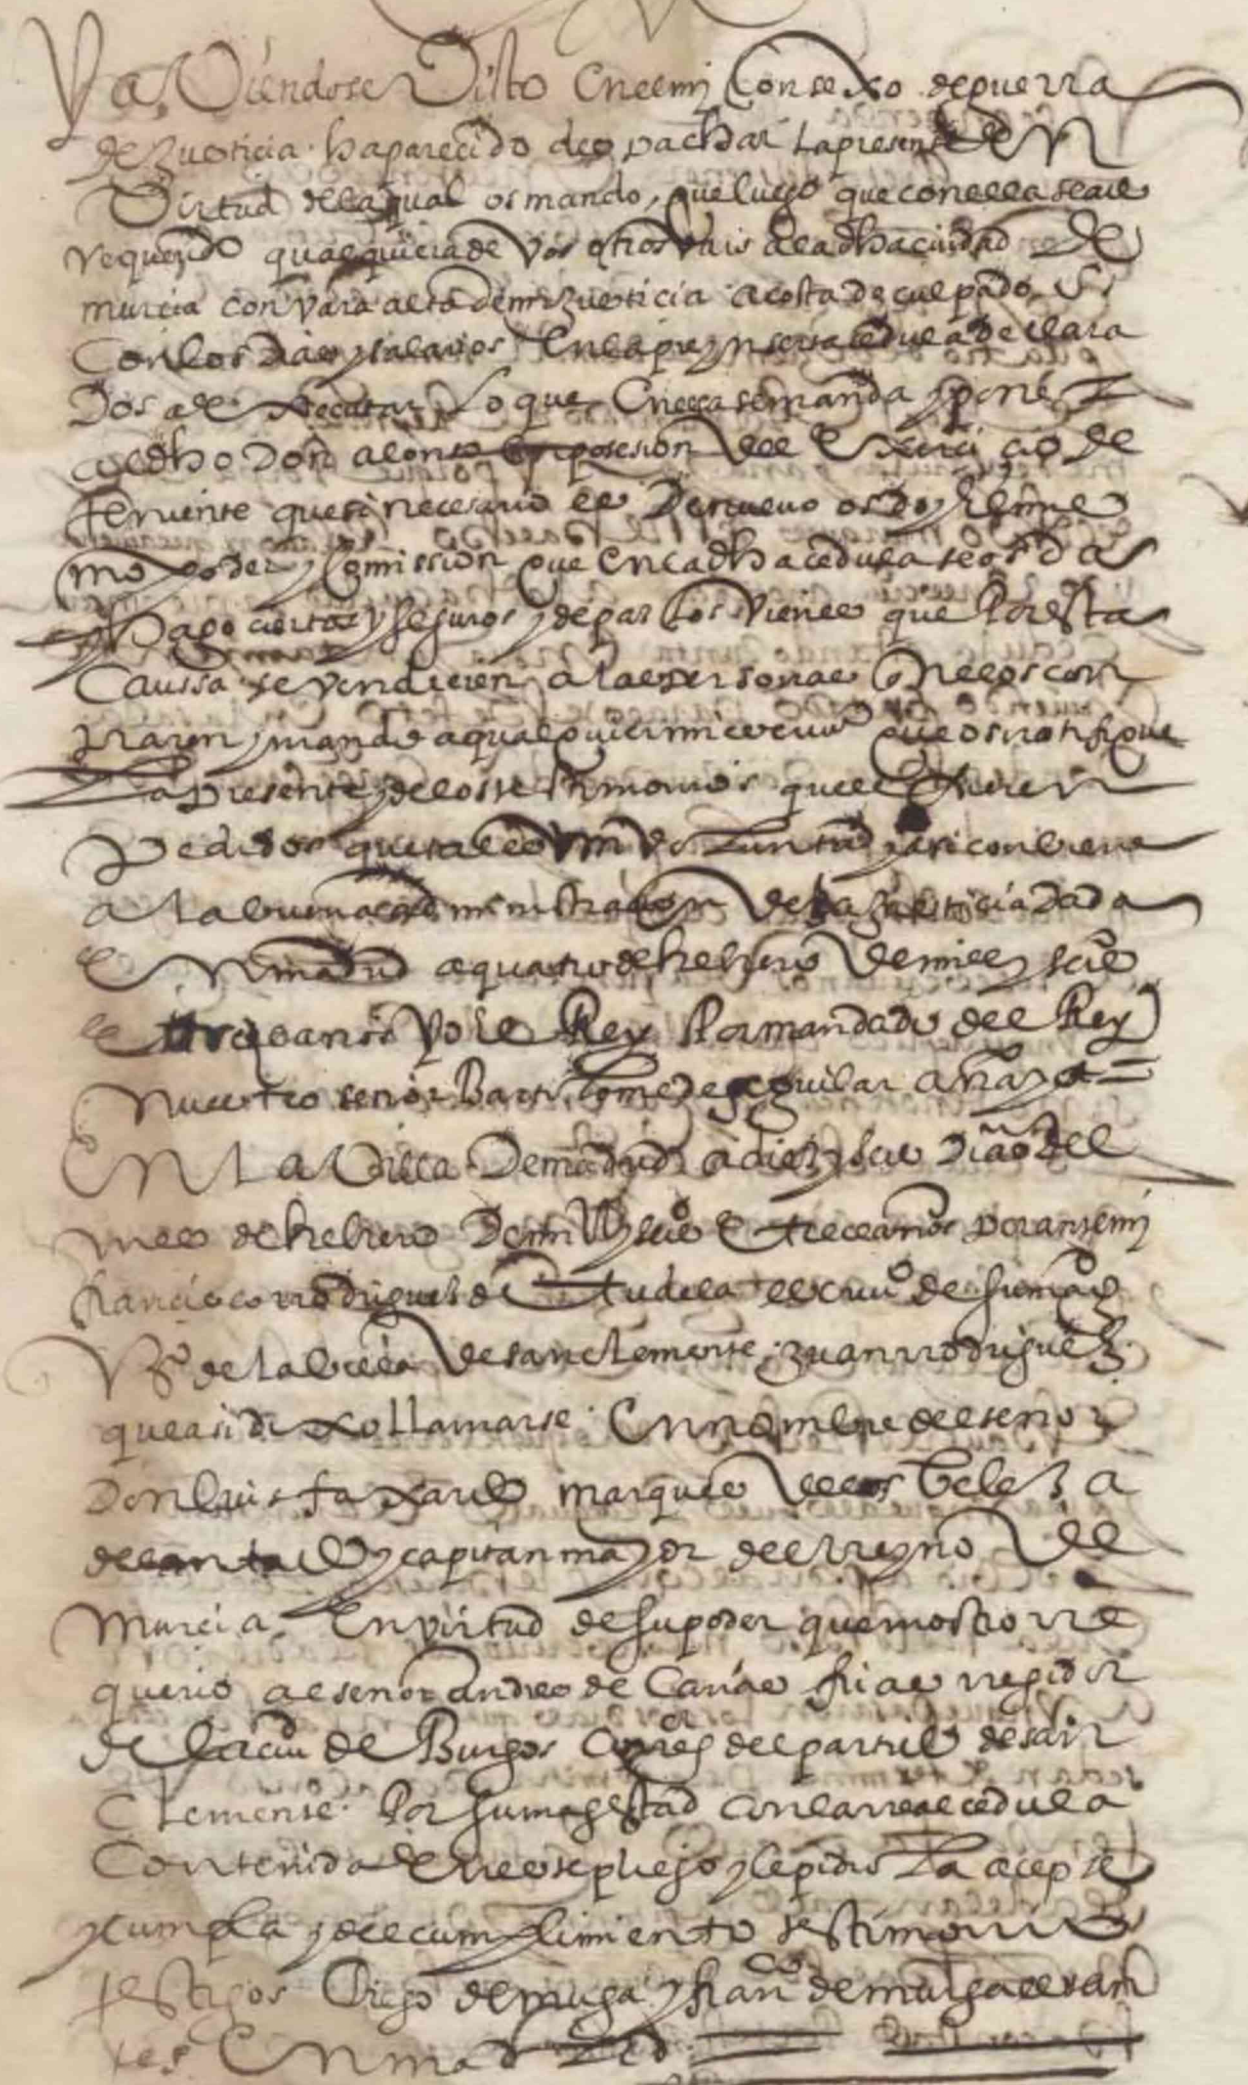 Ya Viendose Visto en el mi Consexo de guerra
de Justicia ha parecido despachar la presente En
Virtud de la qual os mando, que luego que con ella seais
requerido qualquiera de vos otros vais a la dha ciudad De
murcia con vara alta de mi Justicia a costa de culpados
Con los dias y salarios En la pre ynserta cedula declara
Dos a executar Lo que En ella se manda y poner
al dho Don alonso En posesion del Exerci cio de
teniente que si necesario es De nuevo os doy El mes
mo poder y Comission que en la dha cedula se os da
y hago ciertos y seguros y de paz los Vienes que Por esta
Caussa se vendieren a las personas que los con
praren y mando a qualquier mi escriuo que os notifique
La presente y de los testimonios que le fueren
Pedidos que tal es mi Voluntad y asi conbiene
a la buena administracion de la Justicia dada
En madrid a quatro de hebrero de mill y seis
e trece anos Yo le Rey Por mandado del Rey
Nuestro senor Bartolome de aguilar anaya =
En La Villa De madrid a diez y seis Dias del
mes de hebrero De mill y seis E trece anos por ante mi
francisco rrodriguez de tudela escriuo de su magd
Vzo de la villa de san clemente Juan rrodriguez
que asi dixo llamarse En nombre del senor
Don luis faxardo marques de los belez a
delantado y capitan mayor del rreyno de
Murcia En virtud de su poder que mostro rre
querio al senor andres de Canas frias rregidor
de la ciud de Burgos Correg del partido de san
Clemente Por su magestad con la rreal cedula
Contenida En este pliego y le pidio La acepte
y cumpla y de el cumplimiento testimonio
testigos Diego de muga y franco de mulga estan
tes En madrid